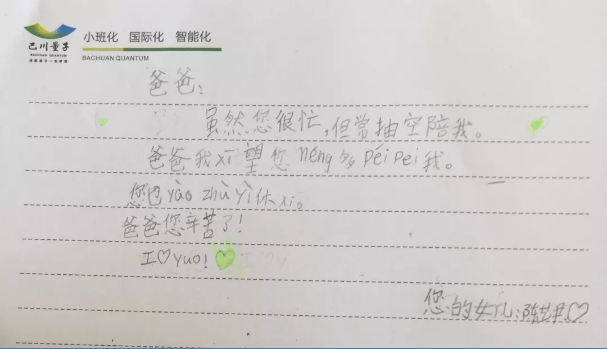 巴川量子
BACHUAN QUANTUM
小班化 国际化 智能化
BACHUAN QUANTUM
爸爸：
虽然您很忙，但常抽空陪我。
爸爸我xī望您néng多péi pei我。
您也yào zhù yì休xi。
爸爸您辛苦了！
I♡yuo！♡
您的女儿：陈